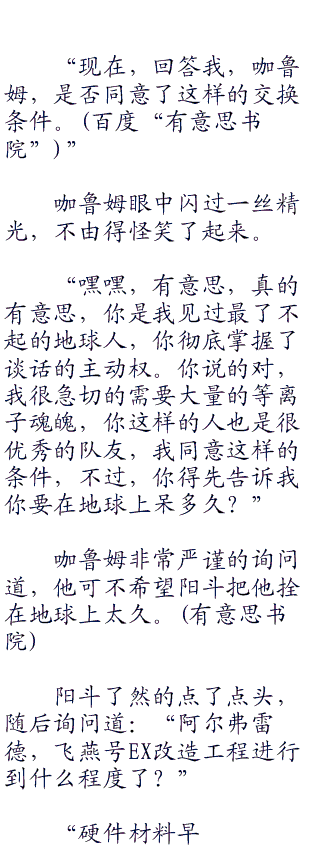 “现在，回答我，咖鲁
姆，是否同意了这样的交换
条件。(百度“有意思书
院”)”
咖鲁姆眼中闪过一丝精
光，不由得怪笑了起来。
“嘿嘿，有意思，真的
有意思，你是我见过最了不
起的地球人，你彻底掌握了
谈话的主动权。你说的对，
我很急切的需要大量的等离
子魂魄，你这样的人也是很
优秀的队友，我同意这样的
条件，不过，你得先告诉我
你要在地球上呆多久？”
咖鲁姆非常严谨的询问
道，他可不希望阳斗把他拴
在地球上太久。(有意思书
院)
阳斗了然的点了点头，
随后询问道：“阿尔弗雷
德，飞燕号EX改造工程进行
到什么程度了？”
“硬件材料早